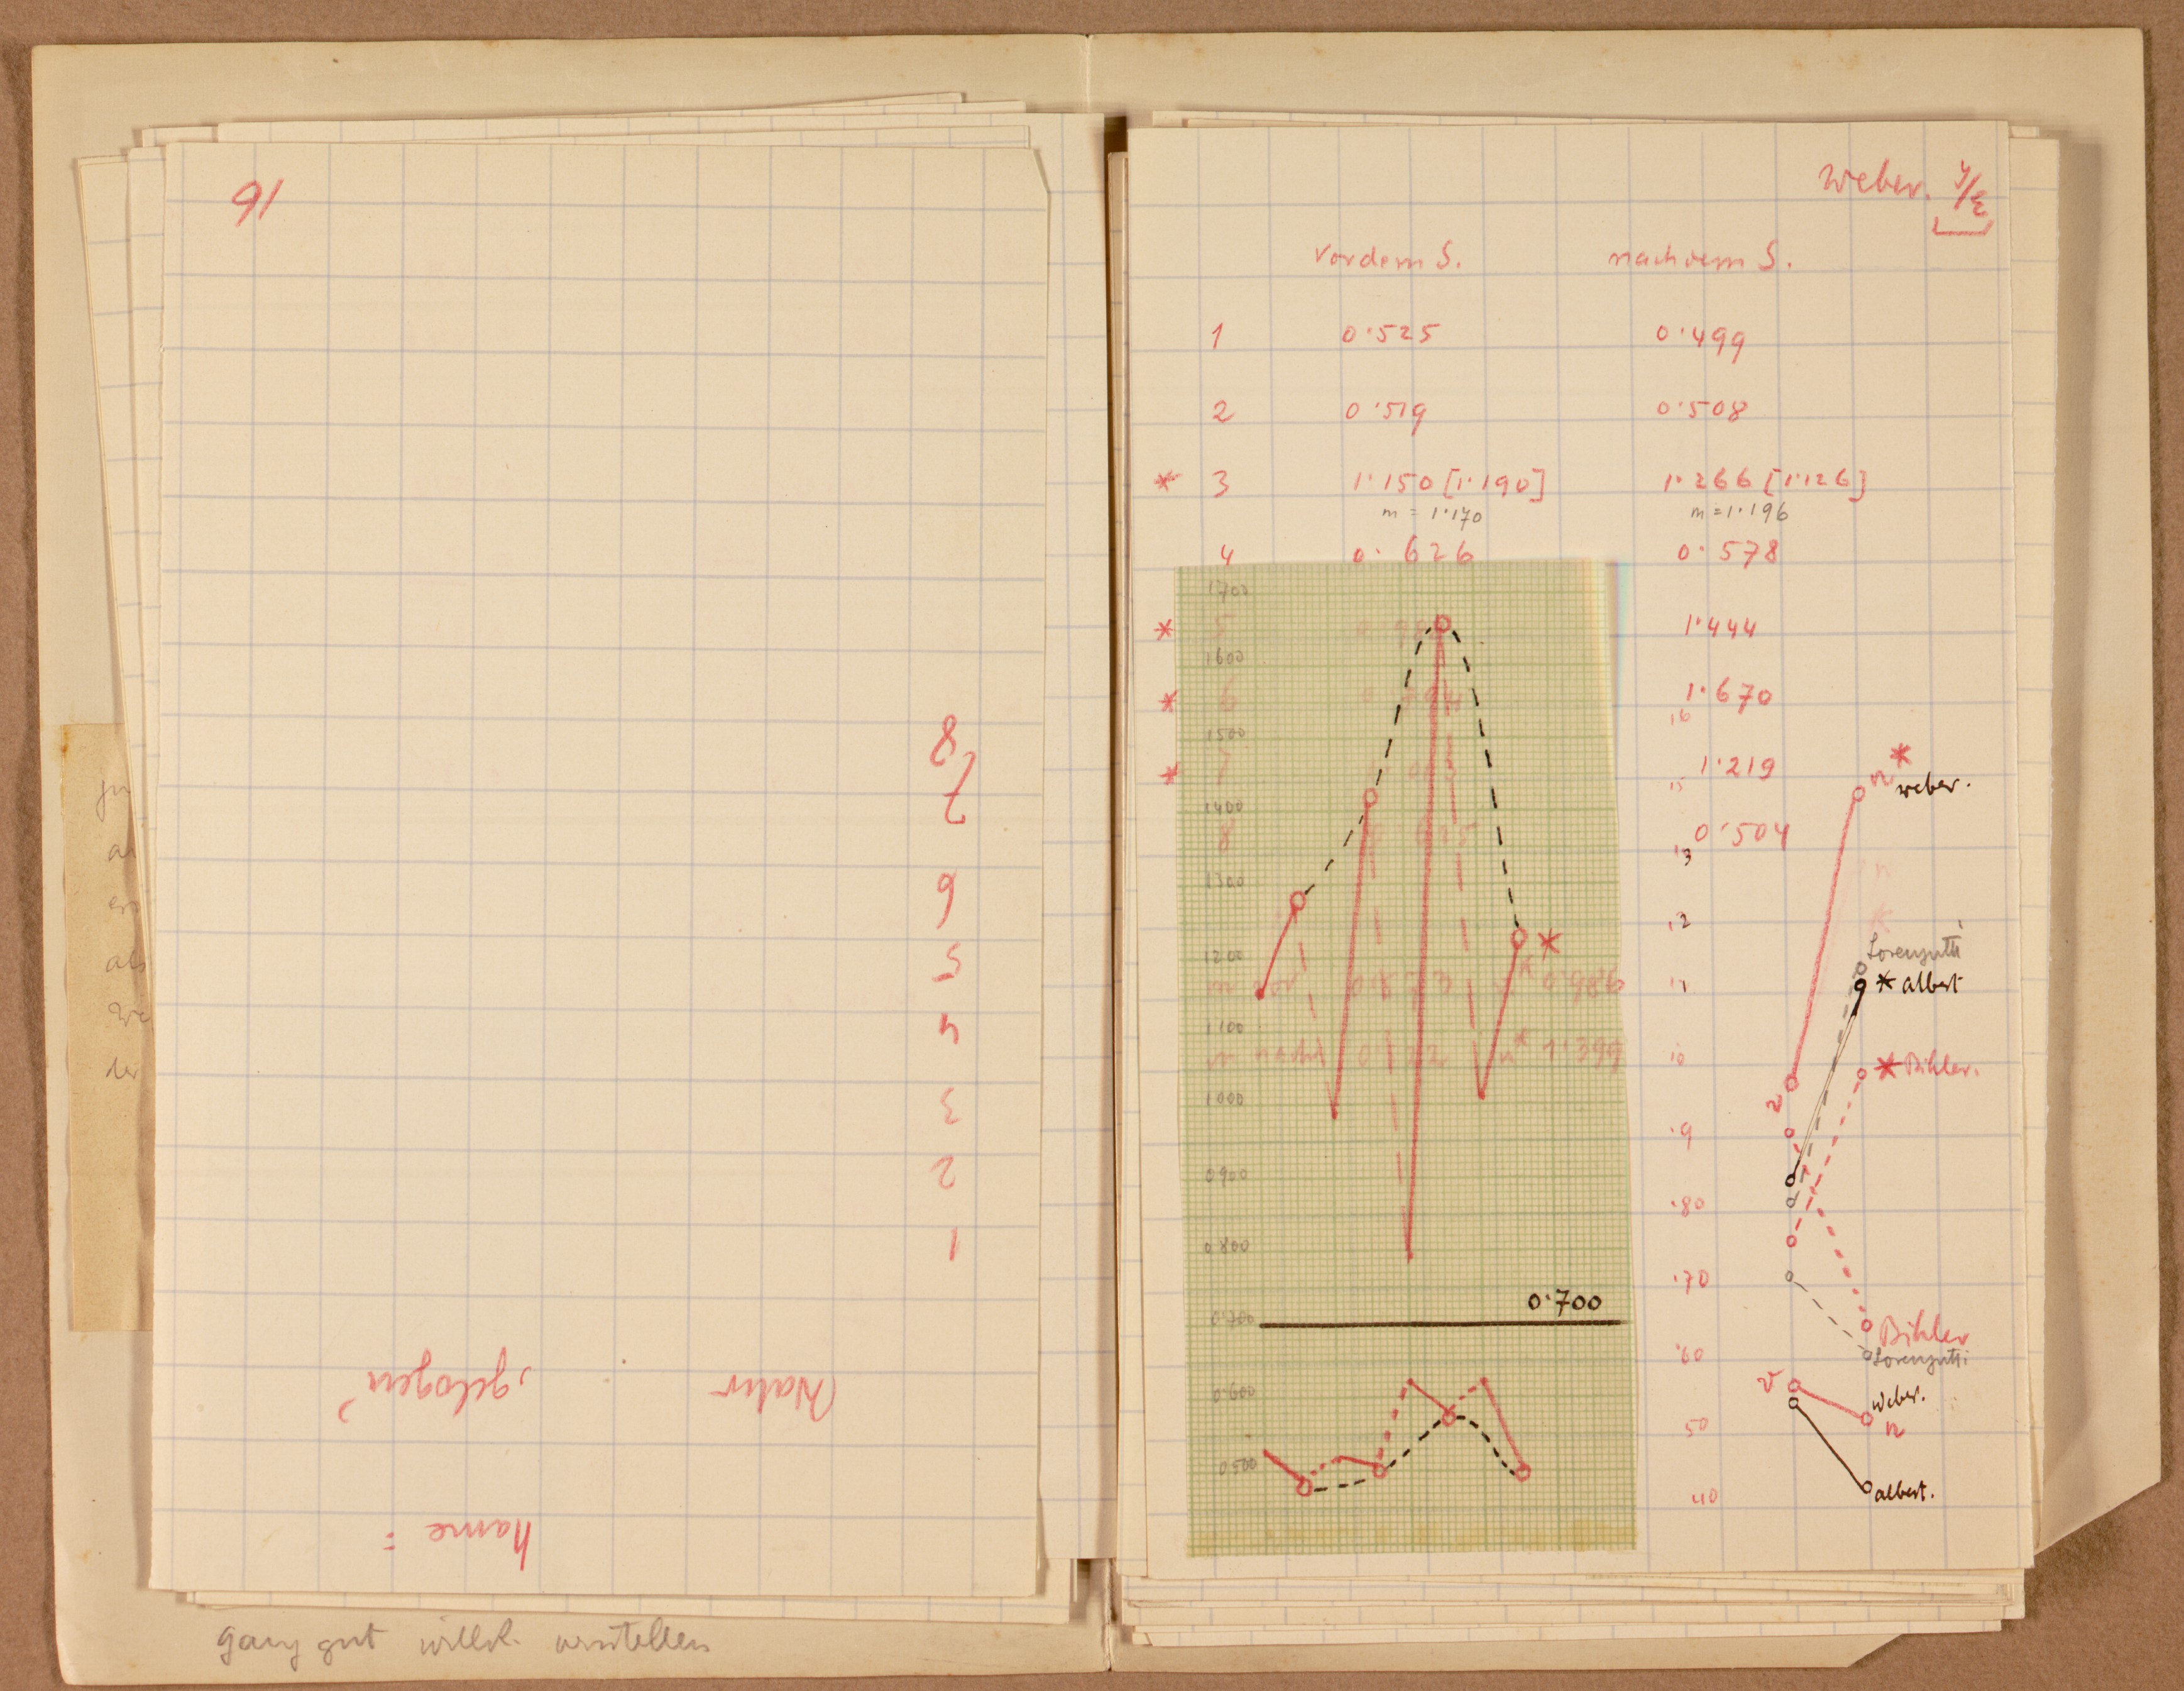 16
8
7
6
5
4
3
2
1
Wahr „gelogen“
name =
ganz gut willk. verstellen
Weber.
vor dem S. nach dem S.
1 0·525 0·499
2 0·519 0·508
* 3 1·150 [1·190] 1·266 [1·126]
m = 1·170 m = 1·196
4 0·626 0·578
1700
* 5 1·444
1600
* 6 1·670
1500
* 7 1·219
1400
8 0·504
1300
1200
m vor
1100
m nach m* 1·399
1000
0900
0800
0·700
0700
0600
0500
*
16
15
13
12
11
10
·9
·80
·70
·60
50
40
n * Weber.
Lorenzutti
* albert
* Bihler.
v
Bihler
Lorenzutti
v Weber.
n
albert.